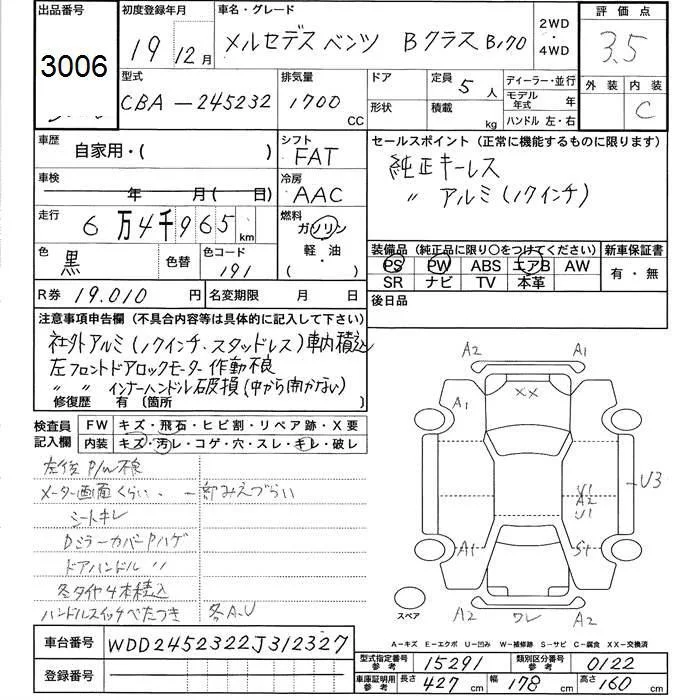 出品番号
3006
初度登録年月
19 12月
車名・グレード
メルセデス ベンツ Bクラス B170
2WD
・
4WD
評価点
3.5
外装 内装
C
型式
CBA-245232
排気量
1700
CC
ドア
形状
定員 5 人
積載 kg
ディーラー・並行
モデル年式 年
ハンドル 左・右
車歴
自家用・( )
シフト
FAT
セールスポイント(正常に機能するものに限ります)
純正キーレス
〃 アルミ(17インチ)
車検
年 月( 日)
冷房
AAC
走行
6万4千965km
燃料
ガソリン
軽・油
( ・ )
色
黒
色替
色コード
191
装備品(純正品に限り○をつけてください)
PS PW ABS エアB AW
SR ナビ TV 本革
新車保証書
有・無
R券 19.010 円
名変期限 月 日
後日品
注意事項申告欄(不具合内容等は具体的に記入して下さい)
社外アルミ(17インチ.スタッドレス)車内積込
左フロントドアロックモーター作動不良
〃 〃 インナーハンドル破損(中から開かない)
修復歴 有(箇所
検査員記入欄
FW キズ・飛石・ヒビ割・リペア跡・X要
内装 キズ・汚レ・コゲ・穴・スレ・キレ・破レ
左後 P/W不良
メーター画面くらい. 一部みえづらい
シートキレ
Dミラーカバー Pハゲ
ドアハンドル 〃
冬タイヤ4本積込
ハンドルスイッチべたつき 各A.U
A2 A1
XX
A1
U3
U1
A2
U1
A1 S1
スペア
A2 ワレ A2
A-キズ E-エクボ U-凹み W-補修跡 S-サビ C-腐食 XX-交換済
車台番号 WDD2452322J312327
登録番号
型式指定番号参考 15291 類別区分番号参考 0122
車庫証明用参考 長さ 427 cm 幅 178 cm 高さ 160 cm